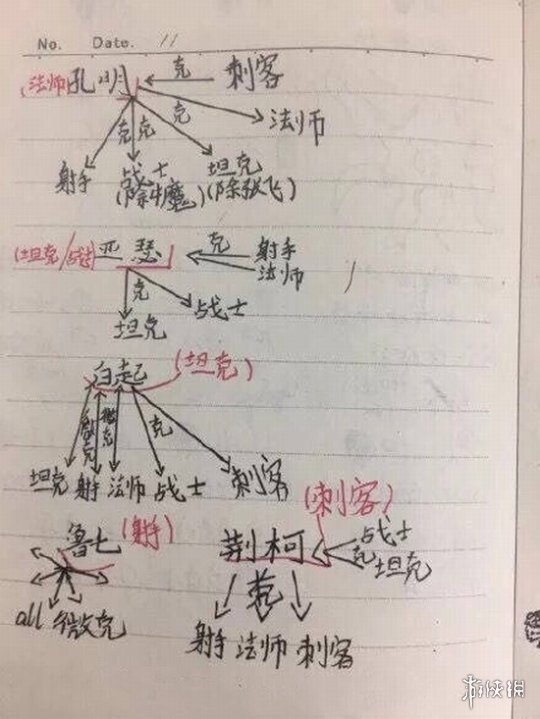 No. Date. 11
(法师)孔明 克 刺客
克 克 克 法师
射手 战士 坦克
(除牛魔) (除张飞)
(坦克/战士) 亚瑟 克 射手
法师
克 战士
坦克
白起 (坦克)
微克 克
坦克 射手 法师 战士 刺客
(刺客)
鲁七 (射手) 荆柯 克 战士
坦克
克
all 微克
射手 法师 刺客
游侠网